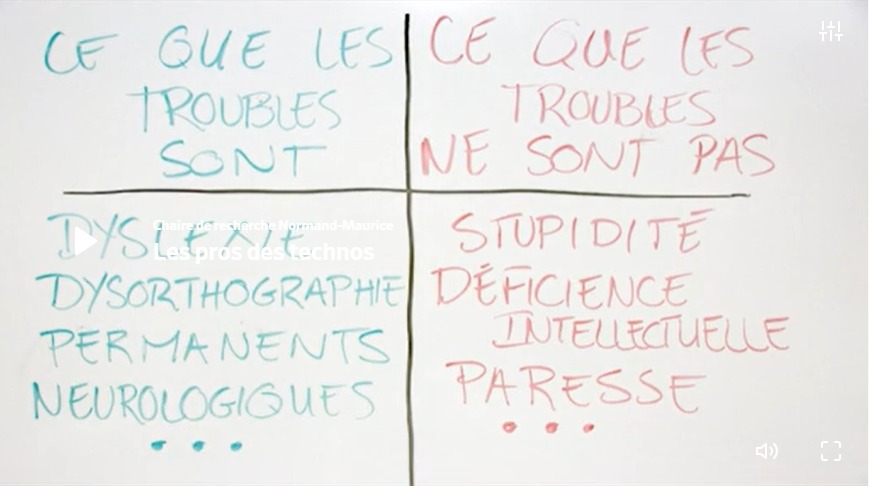 CE QUE LES
TROUBLES
SONT
CE QUE LES
TROUBLES
NE SONT PAS
DYSLEXIE
Chaire de recherche Normand-Maurice
Les pros des technos
DYSORTHOGRAPHIE
PERMANENTS
NEUROLOGIQUES
...
STUPIDITÉ
DÉFICIENCE
INTELLECTUELLE
PARESSE
...